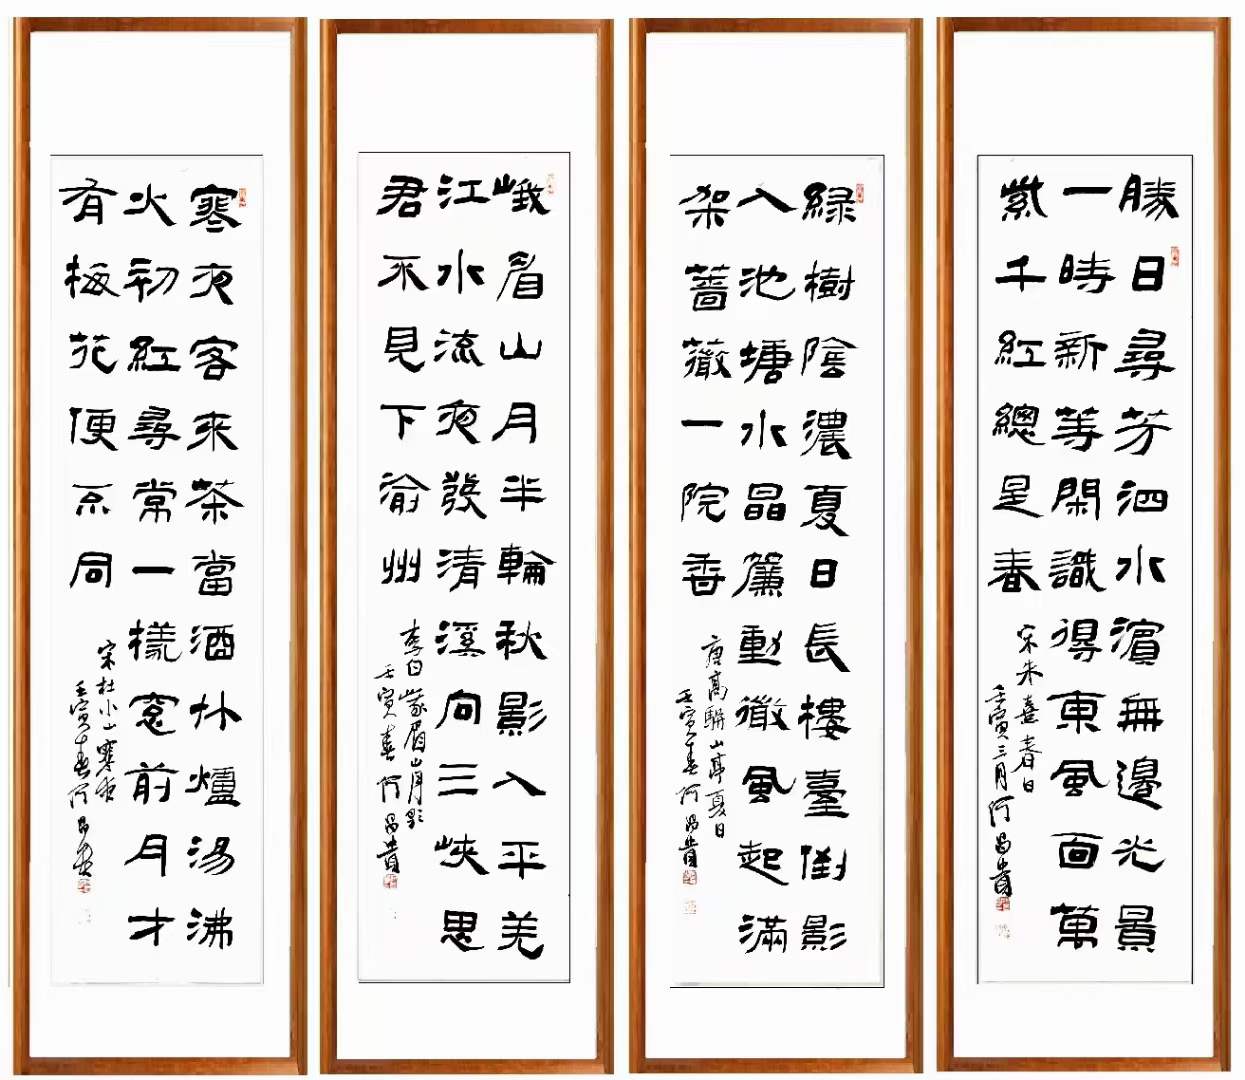 勝日尋芳泗水濱無邊光景
一時新等閑識得東風面萬
紫千紅總是春
宋朱熹春日
壬寅三月何昌貴
綠樹陰濃夏日長樓臺倒影
入池塘水晶簾動微風起滿
架薔薇一院香
唐高駢山亭夏日
壬寅春何昌貴
峨眉山月半輪秋影入平羌
江水流夜發清溪向三峽思
君不見下渝州
李白峩眉山月影
壬寅春何昌貴
寒夜客來茶當酒竹爐湯沸
火初紅尋常一樣窓前月才
有梅花便不同
宋杜小山寒夜
壬寅春何昌貴